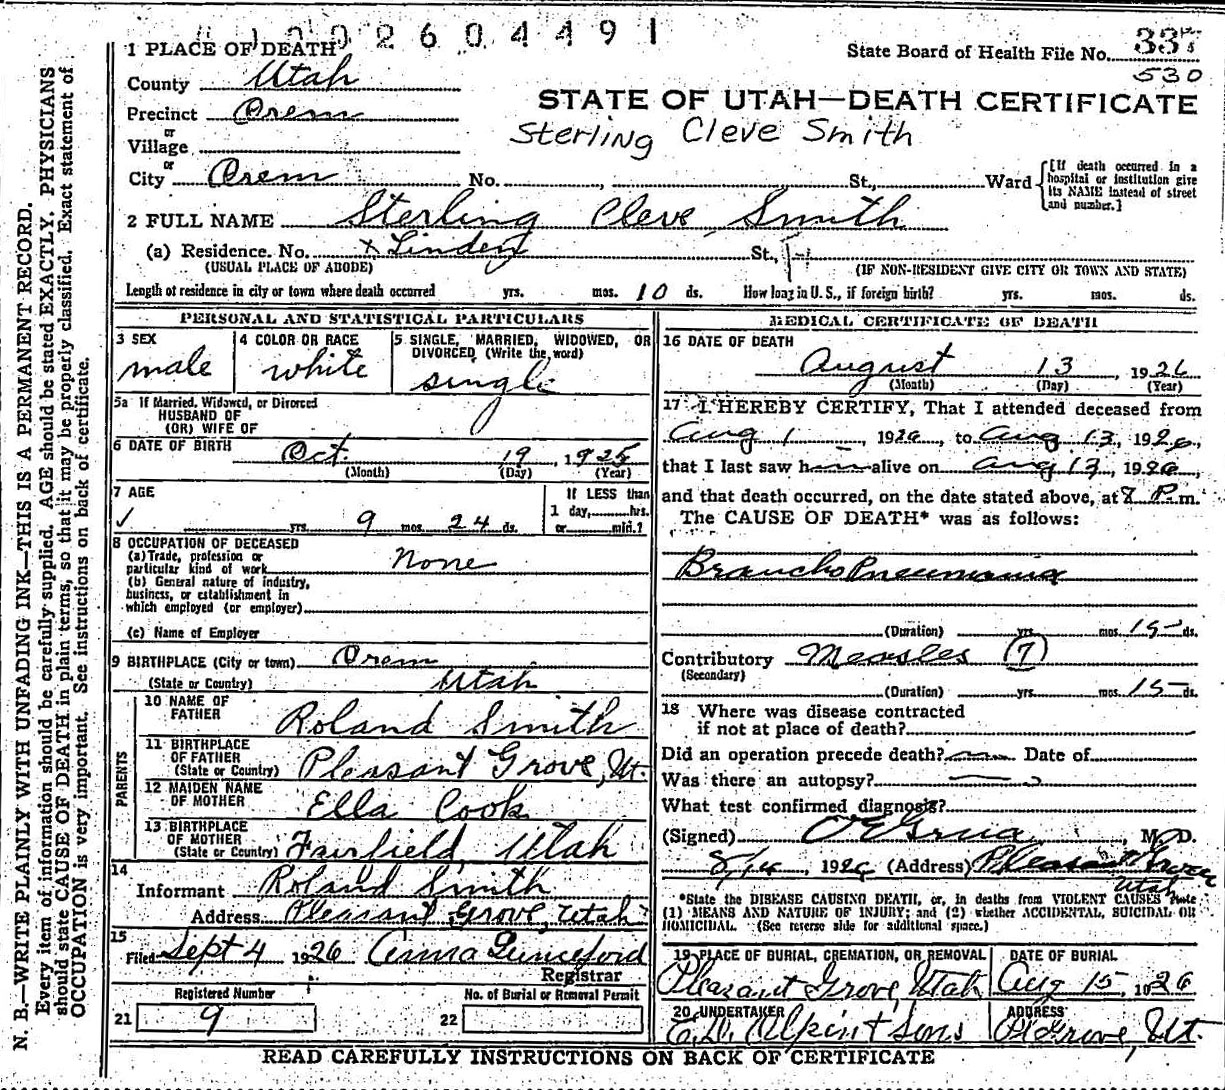 2 6 0 4 4 9 1
1 PLACE OF DEATH
State Board of Health File No.
530
County Utah
STATE OF UTAH—DEATH CERTIFICATE
Precinct Orem
Sterling Cleve Smith
or
Village
or
City Orem No. , St., Ward
[If death occurred in a hospital or institution give its NAME instead of street and number.]
2 FULL NAME Sterling Cleve Smith
(a) Residence. No. Linden St.,
(USUAL PLACE OF ABODE) (IF NON-RESIDENT GIVE CITY OR TOWN AND STATE)
Length of residence in city or town where death occurred yrs. mos. 10 ds. How long in U. S., if foreign birth? yrs. mos. ds.
PERSONAL AND STATISTICAL PARTICULARS
3 SEX male
4 COLOR OR RACE white
5 SINGLE, MARRIED, WIDOWED, OR DIVORCED (Write the word)
single
5a If Married, Widowed, or Divorced
HUSBAND OF
(OR) WIFE OF
6 DATE OF BIRTH Oct. 19, 1925
(Month) (Day) (Year)
7 AGE
yrs. 9 mos. 24 ds.
If LESS than
1 day, hrs.
or min.?
8 OCCUPATION OF DECEASED
(a) Trade, profession or
particular kind of work None
(b) General nature of industry,
business, or establishment in
which employed (or employer)
(c) Name of Employer
9 BIRTHPLACE (City or town) Orem
(State or Country) Utah
PARENTS
10 NAME OF
FATHER Roland Smith
11 BIRTHPLACE
OF FATHER
(State or Country) Pleasant Grove, Ut.
12 MAIDEN NAME
OF MOTHER Ella Cook
13 BIRTHPLACE
OF MOTHER
(State or Country) Fairfield, Utah
14
Informant Roland Smith
Address Pleasant Grove, Utah
15
Filed Sept 4 1926 Anna
Registrar
Registered Number
21 9
No. of Burial or Removal Permit
22
MEDICAL CERTIFICATE OF DEATH
16 DATE OF DEATH
August 13, 1926
(Month) (Day) (Year)
17 I HEREBY CERTIFY, That I attended deceased from
Aug 1, 1926, to Aug 13, 1926,
that I last saw h alive on Aug 13, 1926,
and that death occurred, on the date stated above, at 8 P. m.
The CAUSE OF DEATH* was as follows:
Broncho Pneumonia
(Duration) yrs. mos. 15 ds.
Contributory Measles (7)
(Secondary)
(Duration) yrs. mos. 15 ds.
18 Where was disease contracted
if not at place of death?
Did an operation precede death? Date of
Was there an autopsy?
What test confirmed diagnosis?
(Signed) M. D.
8/14, 1926 (Address) Pleasant Grove
Utah
*State the DISEASE CAUSING DEATH, or, in deaths from VIOLENT CAUSES state
(1) MEANS AND NATURE OF INJURY; and (2) whether ACCIDENTAL, SUICIDAL OR
HOMICIDAL. (See reverse side for additional space.)
19 PLACE OF BURIAL, CREMATION, OR REMOVAL
Pleasant Grove, Utah
DATE OF BURIAL
Aug 15, 1926
20 UNDERTAKER
E.D. Olpin + Sons
ADDRESS
Pl Grove, Ut.
READ CAREFULLY INSTRUCTIONS ON BACK OF CERTIFICATE
N. B.—WRITE PLAINLY WITH UNFADING INK—THIS IS A PERMANENT RECORD.
Every item of information should be carefully supplied. AGE should be stated EXACTLY. PHYSICIANS
should state CAUSE OF DEATH in plain terms, so that it may be properly classified. Exact statement of
OCCUPATION is very important. See instructions on back of certificate.